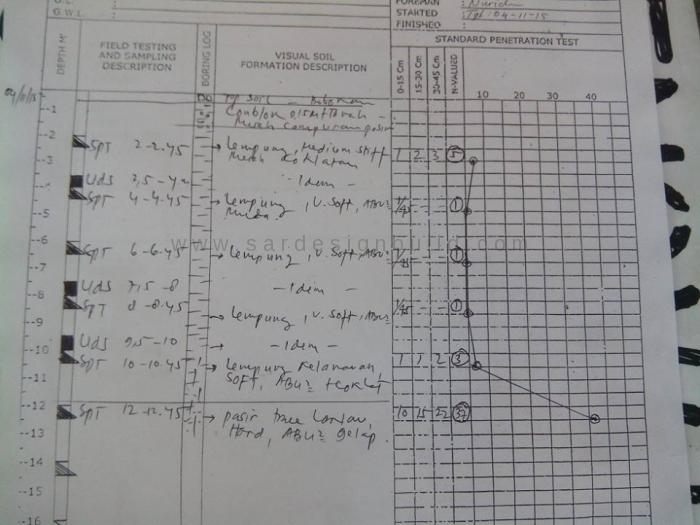 G.W.L. :
FOREMAN : Nuridin
STARTED : Tgl. 04-11-15
FINISHED :
DEPTH M'
FIELD TESTING AND SAMPLING DESCRIPTION
BORING LOG
VISUAL SOIL FORMATION DESCRIPTION
STANDARD PENETRATION TEST
0-15 Cm
15-30 Cm
30-45 Cm
N-VALUED
10 20 30 40
Top Soil -
-1
Merah Campuran pasir
-2
SPT 2-2.45 Lempung, Medium Stiff 1 2 3 5
-3
Merah Coklatan
Uds 3,5-4 - Idem -
SPT 4-4.45 Lempung, V. Soft, ABU2 1/45 - - 1
-5
Muda.
-6
SPT 6-6.45 Lempung, V. Soft, ABU2 1/45 - - 1
www.sardesignbuild.com
-7
Uds 7,5-8 - Idem -
-8
SPT 8-8.45 Lempung, V. Soft, ABU2 1/45 - - 1
-9
Uds 9,5-10 - Idem -
-10
SPT 10-10.45 Lempung Kelanauan, 1 1 2 3
-11
SOFT, ABU2 + Coklat
-12
SPT 12-12.45 pasir trace Lanau, 10 15 22 37
-13
Hard, ABU2 gelap.
-14
-15
-16